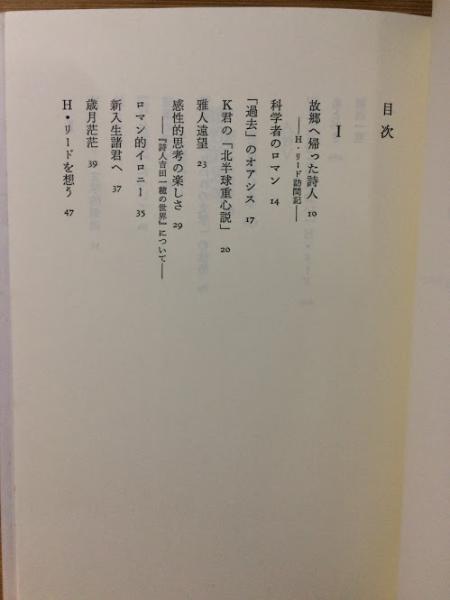 目次
I
故郷へ帰った詩人 10
——H・リード訪問記——
科学者のロマン 14
「過去」のオアシス 17
K君の「北半球重心説」 20
雅人遠望 23
感性的思考の楽しさ 29
——『詩人吉田一穂の世界』について——
ロマン的イロニー 35
新入生諸君へ 37
歳月茫茫 39
H・リードを想う 47